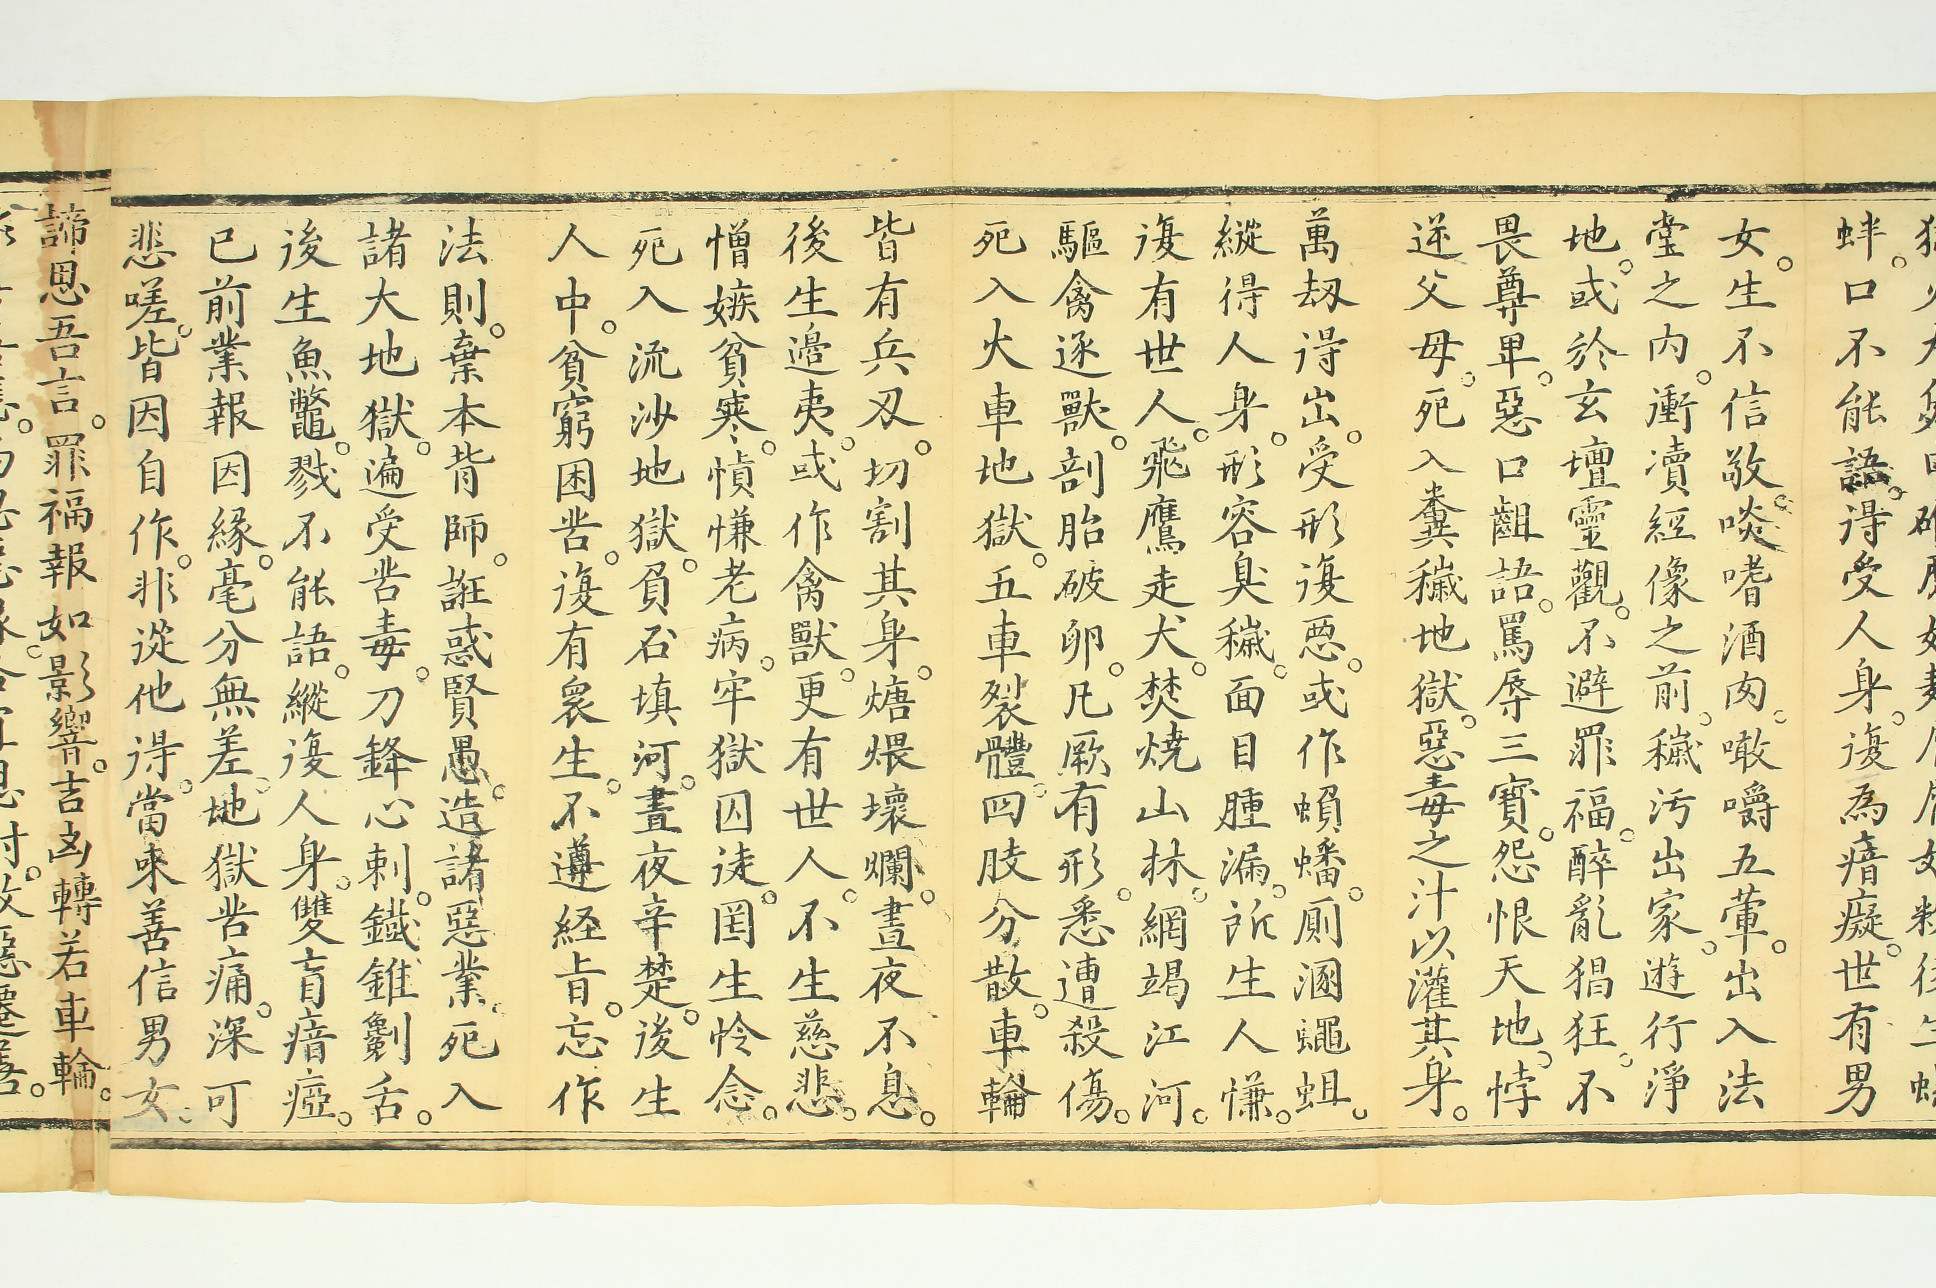 蚌。口不能語。得受人身。復為瘖癡。世有男
女。生不信敬。啖嗜酒肉。噉嚼五葷。出入法
堂之内。衝凟經像之前。穢污出家。遊行淨
地。或於玄壇靈觀。不避罪福。醉亂猖狂。不
畏尊卑。惡口齟語。罵辱三寳。怨恨天地。悖
逆父母。死入糞穢地獄。惡毒之汁以灌其身。
萬劫得出。受形復惡。或作蟦蟠。厠溷蠅蛆。
縱得人身。形容臭穢。面目腫漏。所生人慊。
復有世人。飛鷹走犬。焚燒山林。網竭江河。
驅禽逐獸。剖胎破卵。凡厥有形。悉遭殺傷。
死入火車地獄。五車裂體。四肢分散。車輪
皆有兵刃。切割其身。煻煨壞爛。晝夜不息。
後生邉夷。或作禽獸。更有世人。不生慈悲。
憎嫉貧寒。憤慊老病。牢獄囚徒。罔生怜念。
死入流沙地獄。負石填河。晝夜辛楚。後生
人中。貧窮困苦。復有衆生。不遵経旨。忘作
法則。棄本背師。誑惑賢愚。造諸惡業。死入
諸大地獄。遍受苦毒。刀鋒心刺。鐵錐劖舌。
後生魚鼈。戮不能語。縱復人身。雙盲瘖瘂。
已前業報因緣。毫分無差。地獄苦痛。深可
悲嗟。皆因自作。非從他得。當來善信男女。
諦思吾言。罪福報如影響。吉凶轉若車輪。